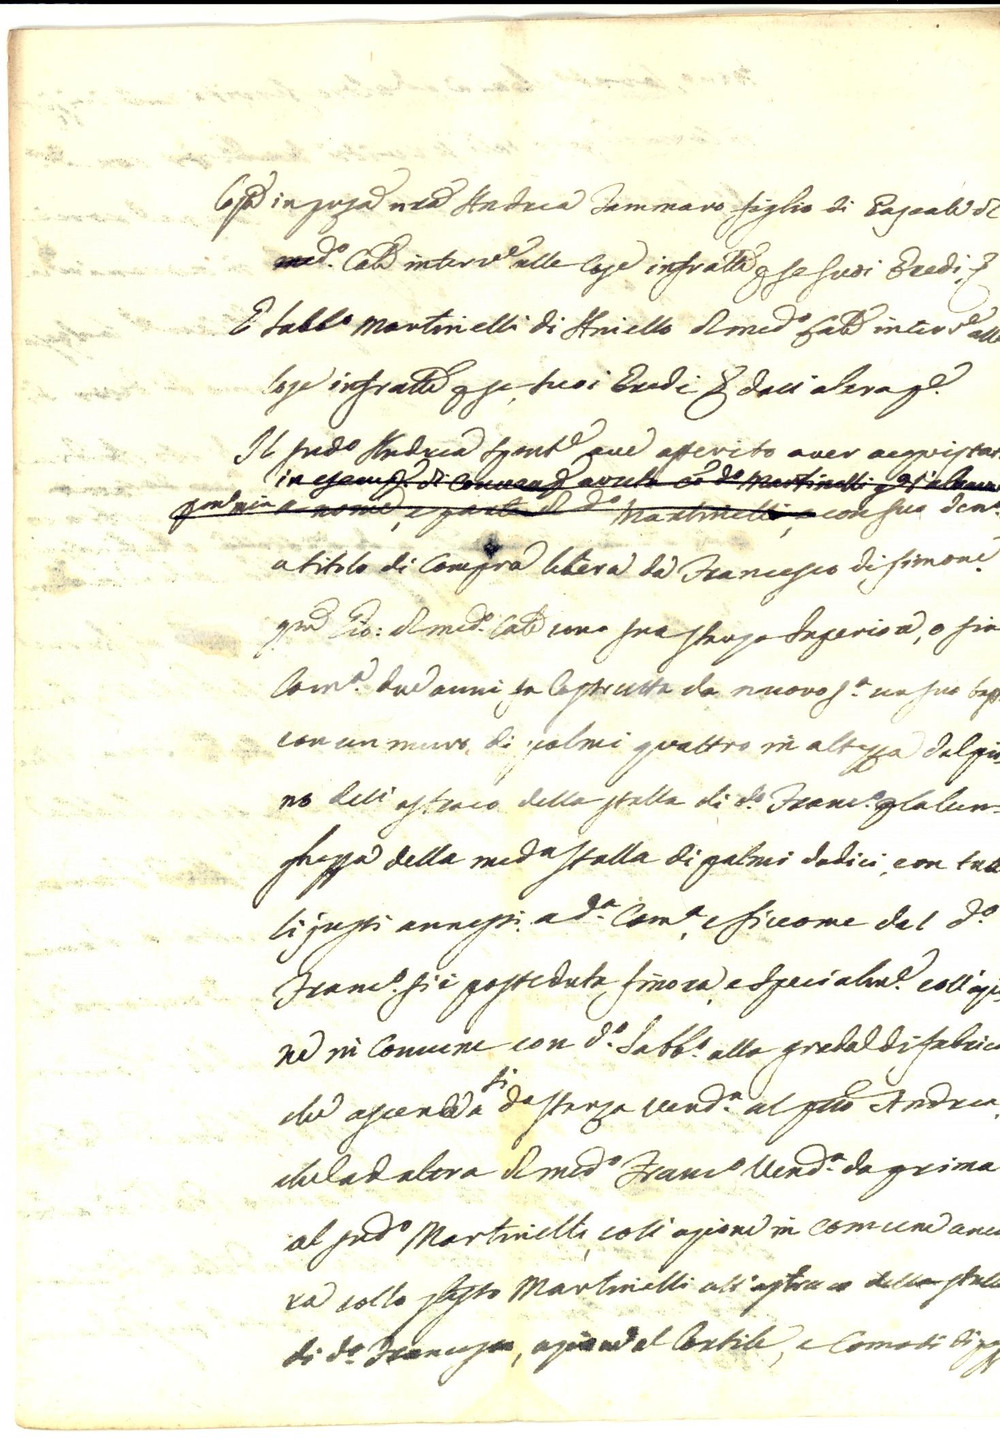 Andrea Iammaro figlio di Pascale di
med.o interv.e alle cose infratte suoi Eredi,
E Sabb.o Martinelli di Aniello di med.o interv.e alle
cose infratte suoi Eredi dall'altra
Il pred.o Andrea have asserito aver acquistat
Martinelli
a nome, e parte di d.o Martinelli, e con suo den.o
a titolo di Compra libera da Francesco di Simone
q.m Gio: di med. una sua stanza Superiore, o sia
Cam.a due anni fa Costrutta da nuovo s.a un suo bass
con un muro di palmi quattro in altezza dal pia
no dell'astraco della stalla di d.o Franc.o per la lun-
ghezza della med.a stalla di palmi dodici, con tutti
li giusti annessi a d.a Cam.a, e siccome dal d.o
Franc.o si è posseduta finora, e specialm.e coll'azio
ne in Comune con d.o Sabb.o alla grada di fabrica
che ascende a si d.a stanza vend.a al Andrea,
che l'altra di med.o Franc.o Vend.a da prima
al pred.o Martinelli, coll'azione in comune anco
ra collo stesso Martinelli all'astraco della stalla
di d.o Francesco, azione al Cortile, e Comodi